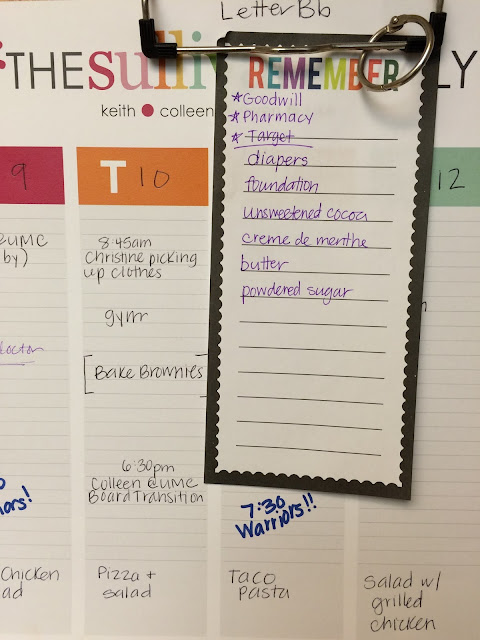 Letter Bb
THE sulliv
LY
keith • colleen
REMEMBER
*Goodwill
*Pharmacy
*Target
diapers
foundation
unsweetened cocoa
creme de menthe
butter
powdered sugar
9
T 10
12
by)
8:45am
Christine picking
up clothes
gym
[Bake Brownies
6:30pm
Colleen @ UMC
Board Transition
7:30
Warriors!!
Chicken
Pizza +
salad
Taco
pasta
Salad w/
grilled
chicken